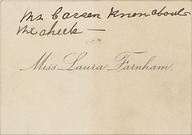 Mr Cassen Know about
the check —
Miss Laura Farnham.